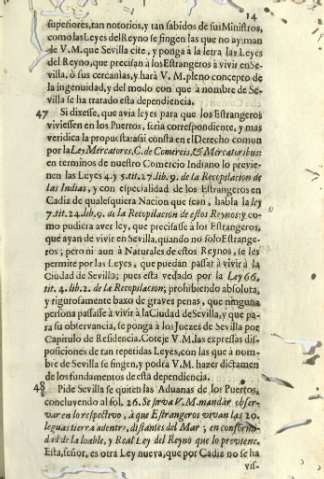 14
superiores, tan notorios, y tan sabidos de sus Ministros,
como las Leyes del Reyno se fingen las que no ay: man
de V. M. que Sevilla cite, y ponga à la letra las Leyes
del Reyno, que precisan à los Estrangeros à vivir en Se-
villa, ò sus cercanias, y harà V. M. pleno concepto de
la ingenuidad, y del modo con que à nombre de Se-
villa se ha tratado esta dependiencia.
47 Si dixesse, que avia leyes para que los Estrangeros
viviessen en los Puertos, seria correspondiente, y mas
veridica la propuesta: assi consta en el Derecho comun
por la Ley Mercatores, C. de Comerciis, & Mercatoribus:
en terminos de nuestro Comercio Indiano lo previe-
nen las Leyes 4. y 5. tit. 27. lib. 9. de la Recopilacion de
las Indias, y con especialidad de los Estrangeros en
Cadiz de qualesquiera Nacion que sean, habla la ley
7. tit. 24. lib. 9. de la Recopilacion de estos Reynos: y co-
mo pudiera aver ley, que precisasse à los Estrangeros,
que ayan de vivir en Sevilla, quando no solo Estrange-
ros; pero ni aun à Naturales de estos Reynos, se les
permite por las Leyes, que puedan passar à vivir à la
Ciudad de Sevilla; pues està vedado por la Ley 66.
tit. 4. lib. 2. de la Recopilacion; prohibiendo absoluta,
y rigurosamente baxo de graves penas, que ninguna
persona passasse à vivir à la Ciudad de Sevilla, y que pa-
ra su observancia, se ponga à los Juezes de Sevilla por
Capitulo de Residencia. Coteje V. M. las expressas dis-
posiciones de tan repetidas Leyes, con las que à nom-
bre de Sevilla se fingen, y podrà V. M. hazer dictamen
de los fundamentos de esta dependiencia.
48 Pide Sevilla se quiten las Aduanas de los Puertos,
concluyendo al fol. 26. Se sirva V. M. mandar obser-
var en lo respectivo, à que Estrangeros vivan las 20.
leguas tierra adentro, distantes del Mar; en conformi-
dad de la loable, y Real Ley del Reyno que lo previene.
Esta, señor, es otra Ley nueva, que por Cadiz no se ha
vis-